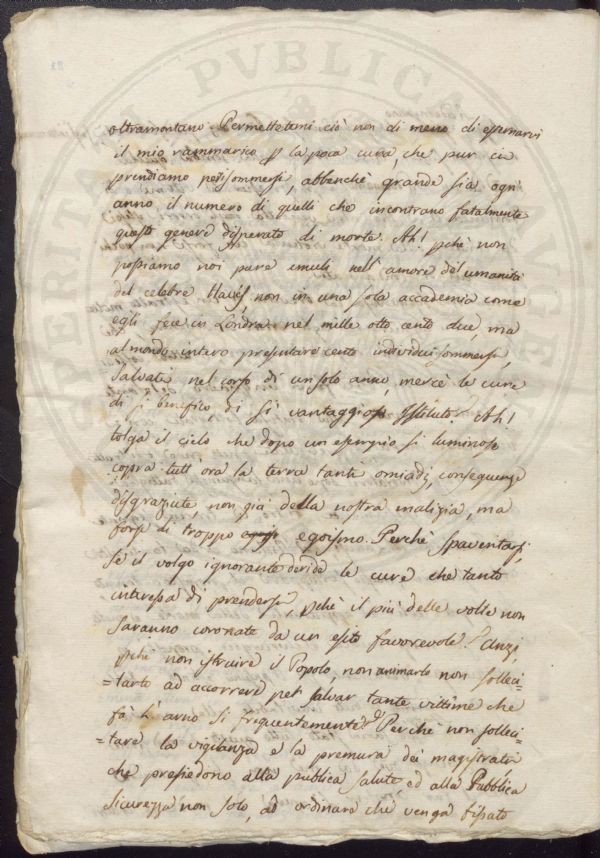 oltramontano. Permettetemi ciò non di meno di esternarvi
il mio rammarico p la poca cura, che pur ci
prendiamo pei sommersi, abbenchè grande sia ogni
anno il numero di quelli che incontrano fatalmente
questo genere disperato di morte. Ah! pchè non
possiamo noi pure emuli nell'amore dell'umanità
del celebre Haves, non in una sola accademia come
egli fece in Londra nel mille otto cento due, ma
al mondo intero presentare cento individui sommersi,
salvati nel corso di un solo anno, mercè le cure
di sì benefico, di sì vantaggioso Istituto? Ah!
tolga il cielo che dopo un esempio sì luminoso
copra tutt'ora la terra tanti omicidj conseguenze
disgraziate, non già della nostra malizia, ma
forse di troppo egoismo. Perchè spaventarsi,
se il volgo ignorante deride le cure che tanto
interessa di prendersi, pchè il più delle volte non
saranno coronate da un esito favorevole? Anzi,
pchè non istruire il Popolo, non animarlo non solleci-
=tarlo ad accorrere per salvar tante vittime che
fà l'Arno sì frequentemente? Perchè non solleci-
=tare la vigilanza e la premura dei magistrati,
che presiedono alla pubblica salute, ed alla Pubblica
Sicurezza non solo, ad ordinare che venga fissato